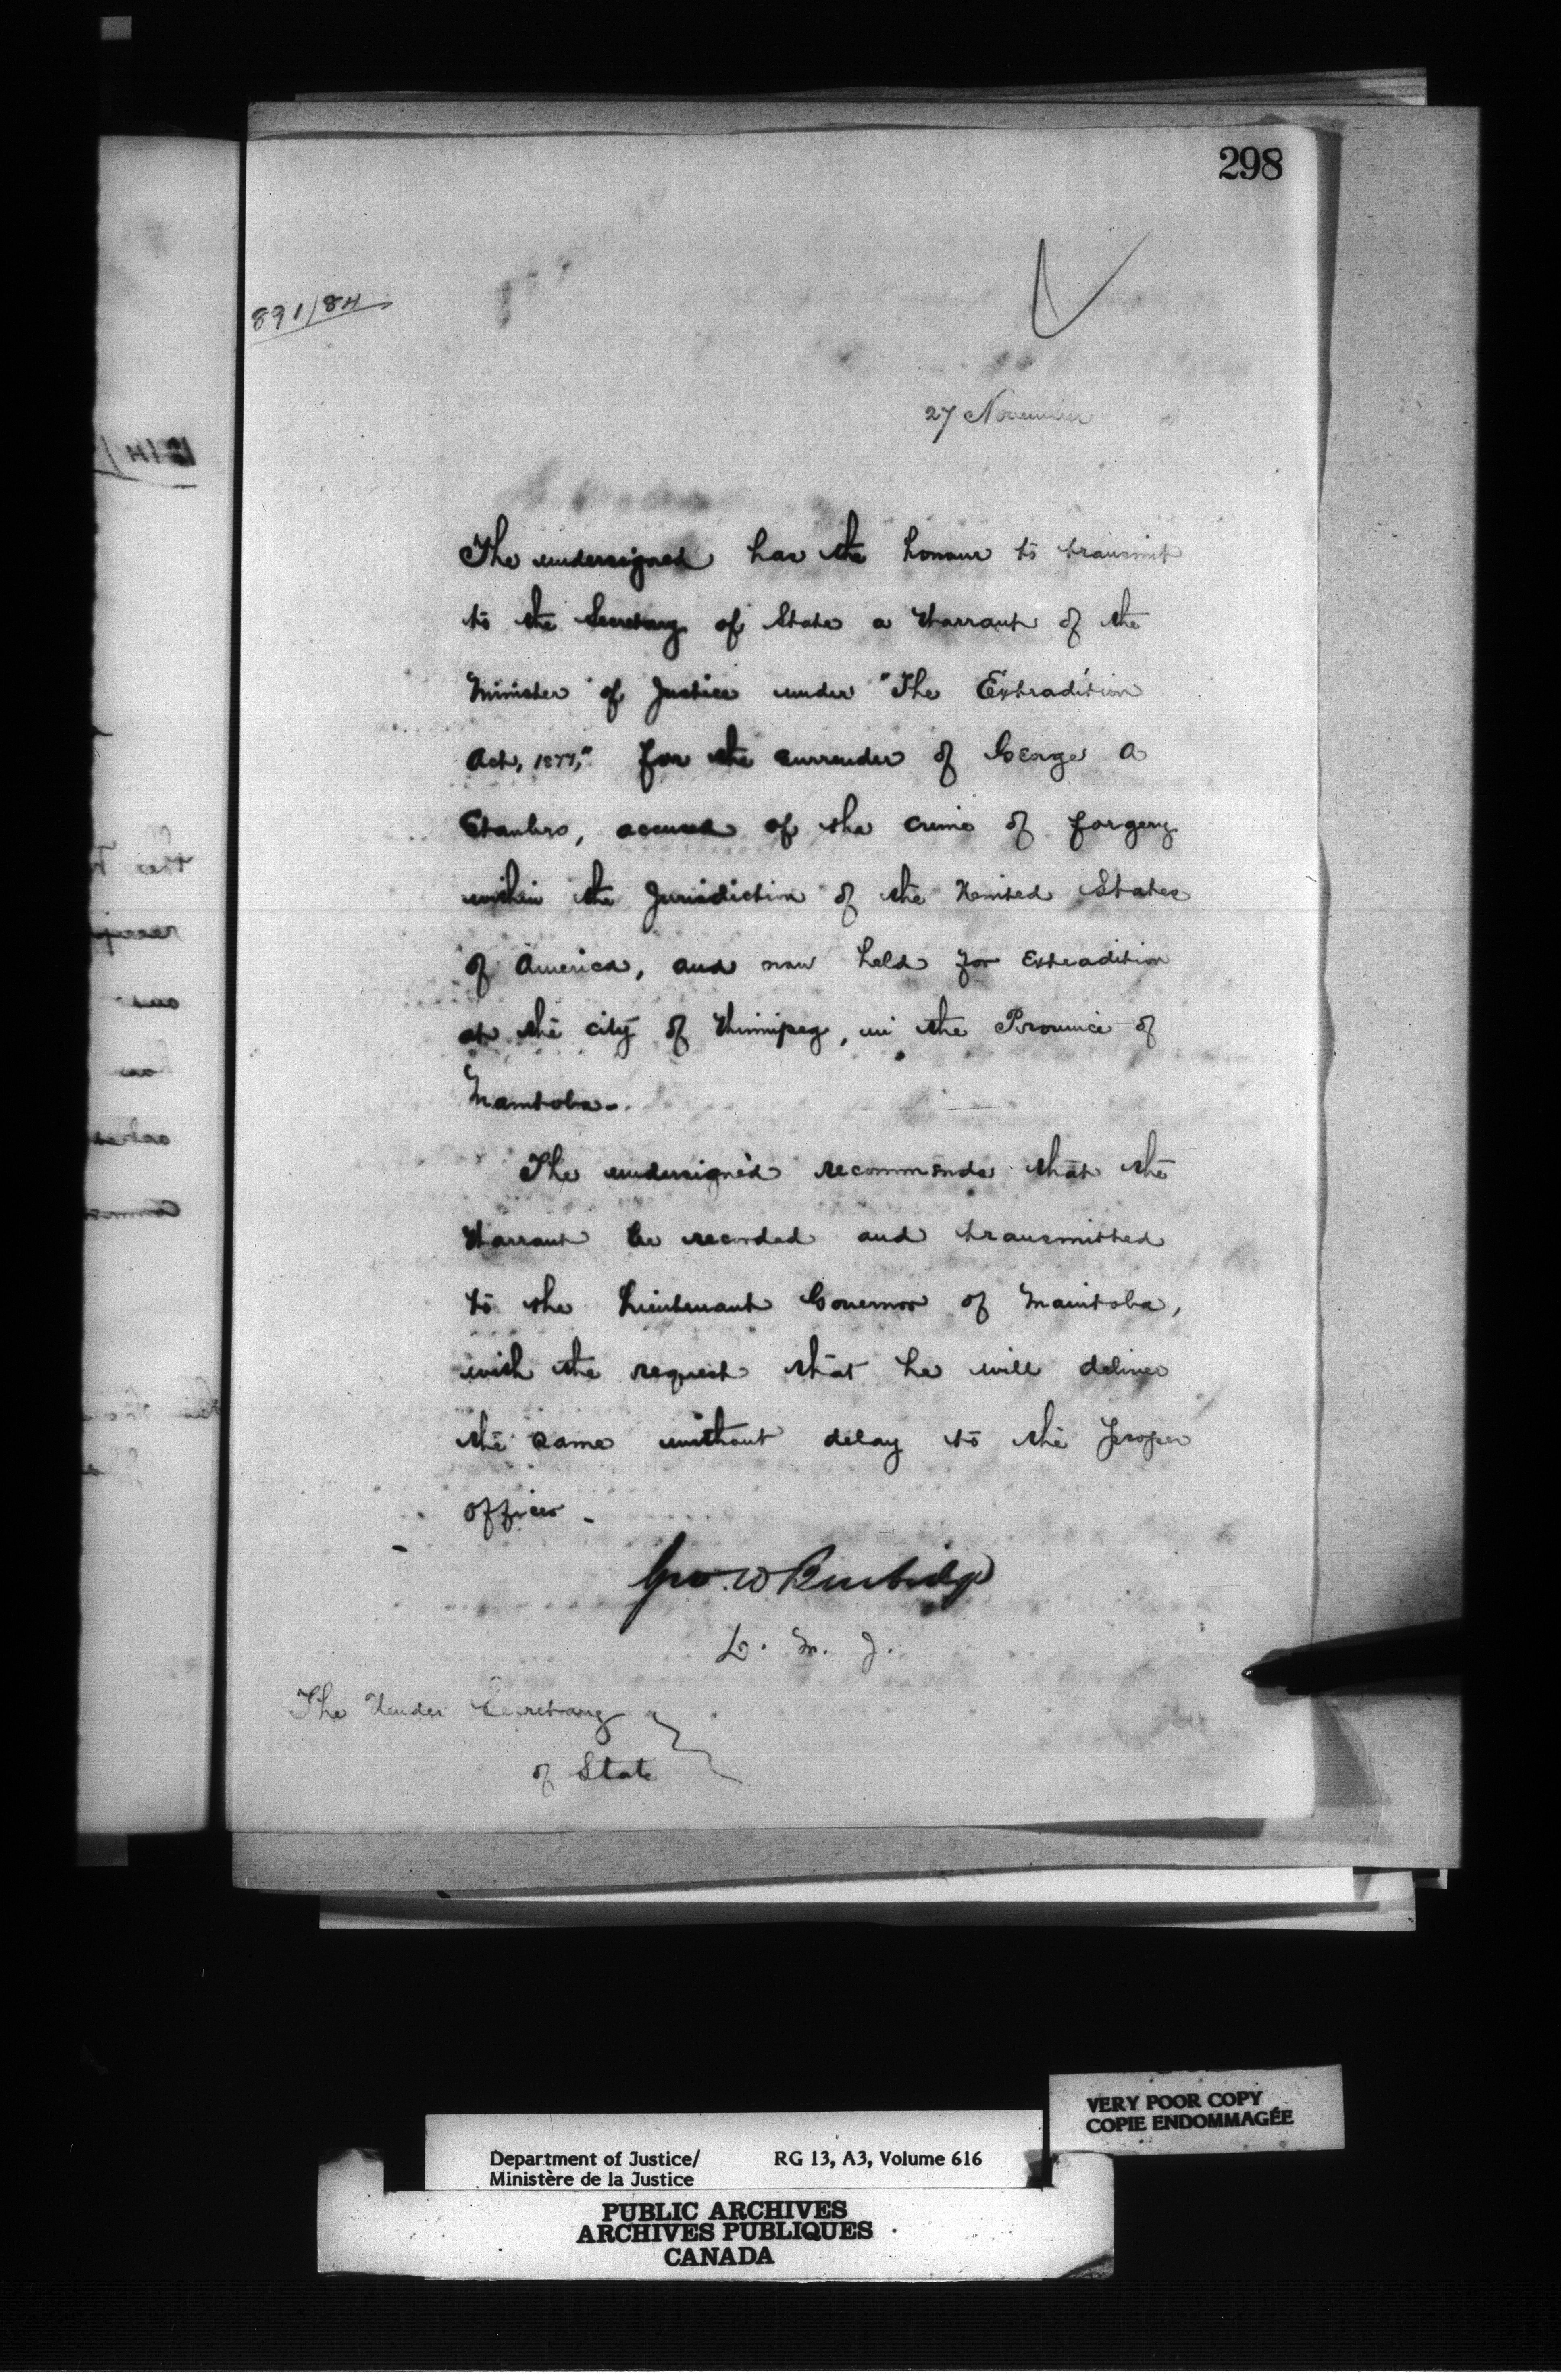 298
891/84
27 November
The undersigned has the honour to transmit
to the Secretary of State a Warrant of the
Minister of Justice under "The Extradition
Act, 1877," for the surrender of George A
accused of the crime of forgery
within the Jurisdiction of the United States
of America, and now held for Extradition
at the city of Winnipeg, in the Province of
Manitoba.
The undersigned recommends that the
Warrant be recorded and transmitted
to the Lieutenant Governor of Manitoba,
with the request that he will deliver
the same without delay to the proper
officer.
Geo. W Burbidge
D. M. J.
The Under Secretary
of State
VERY POOR COPY
COPIE ENDOMMAGÉE
Department of Justice/ RG 13, A3, Volume 616
Ministère de la Justice
PUBLIC ARCHIVES
ARCHIVES PUBLIQUES
CANADA